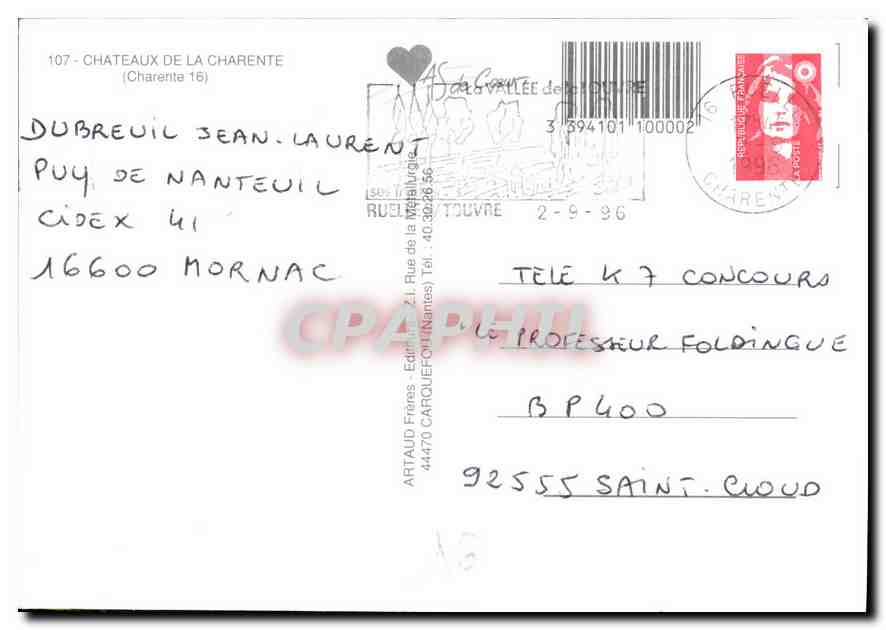 107 - CHATEAUX DE LA CHARENTE
(Charente 16)
DUBREUIL JEAN-LAURENT
PUY DE NANTEUIL
CIDEX 41
16600 MORNAC
AS de Coeur
La VALLÉE de la TOUVRE
3 394101 100002
RUELLE S/TOUVRE 2-9-96
16
CHARENTE
RÉPUBLIQUE FRANÇAISE
LA POSTE
ARTAUD Frères - Editeurs - Z.I. Rue de la Métallurgie
44470 CARQUEFOU (Nantes) Tél. : 40.30.26.56
TELE K7 CONCOURS
"LE PROFESSEUR FOLDINGUE
BP 400
92555 SAINT-CLOUD
CPAPHIL